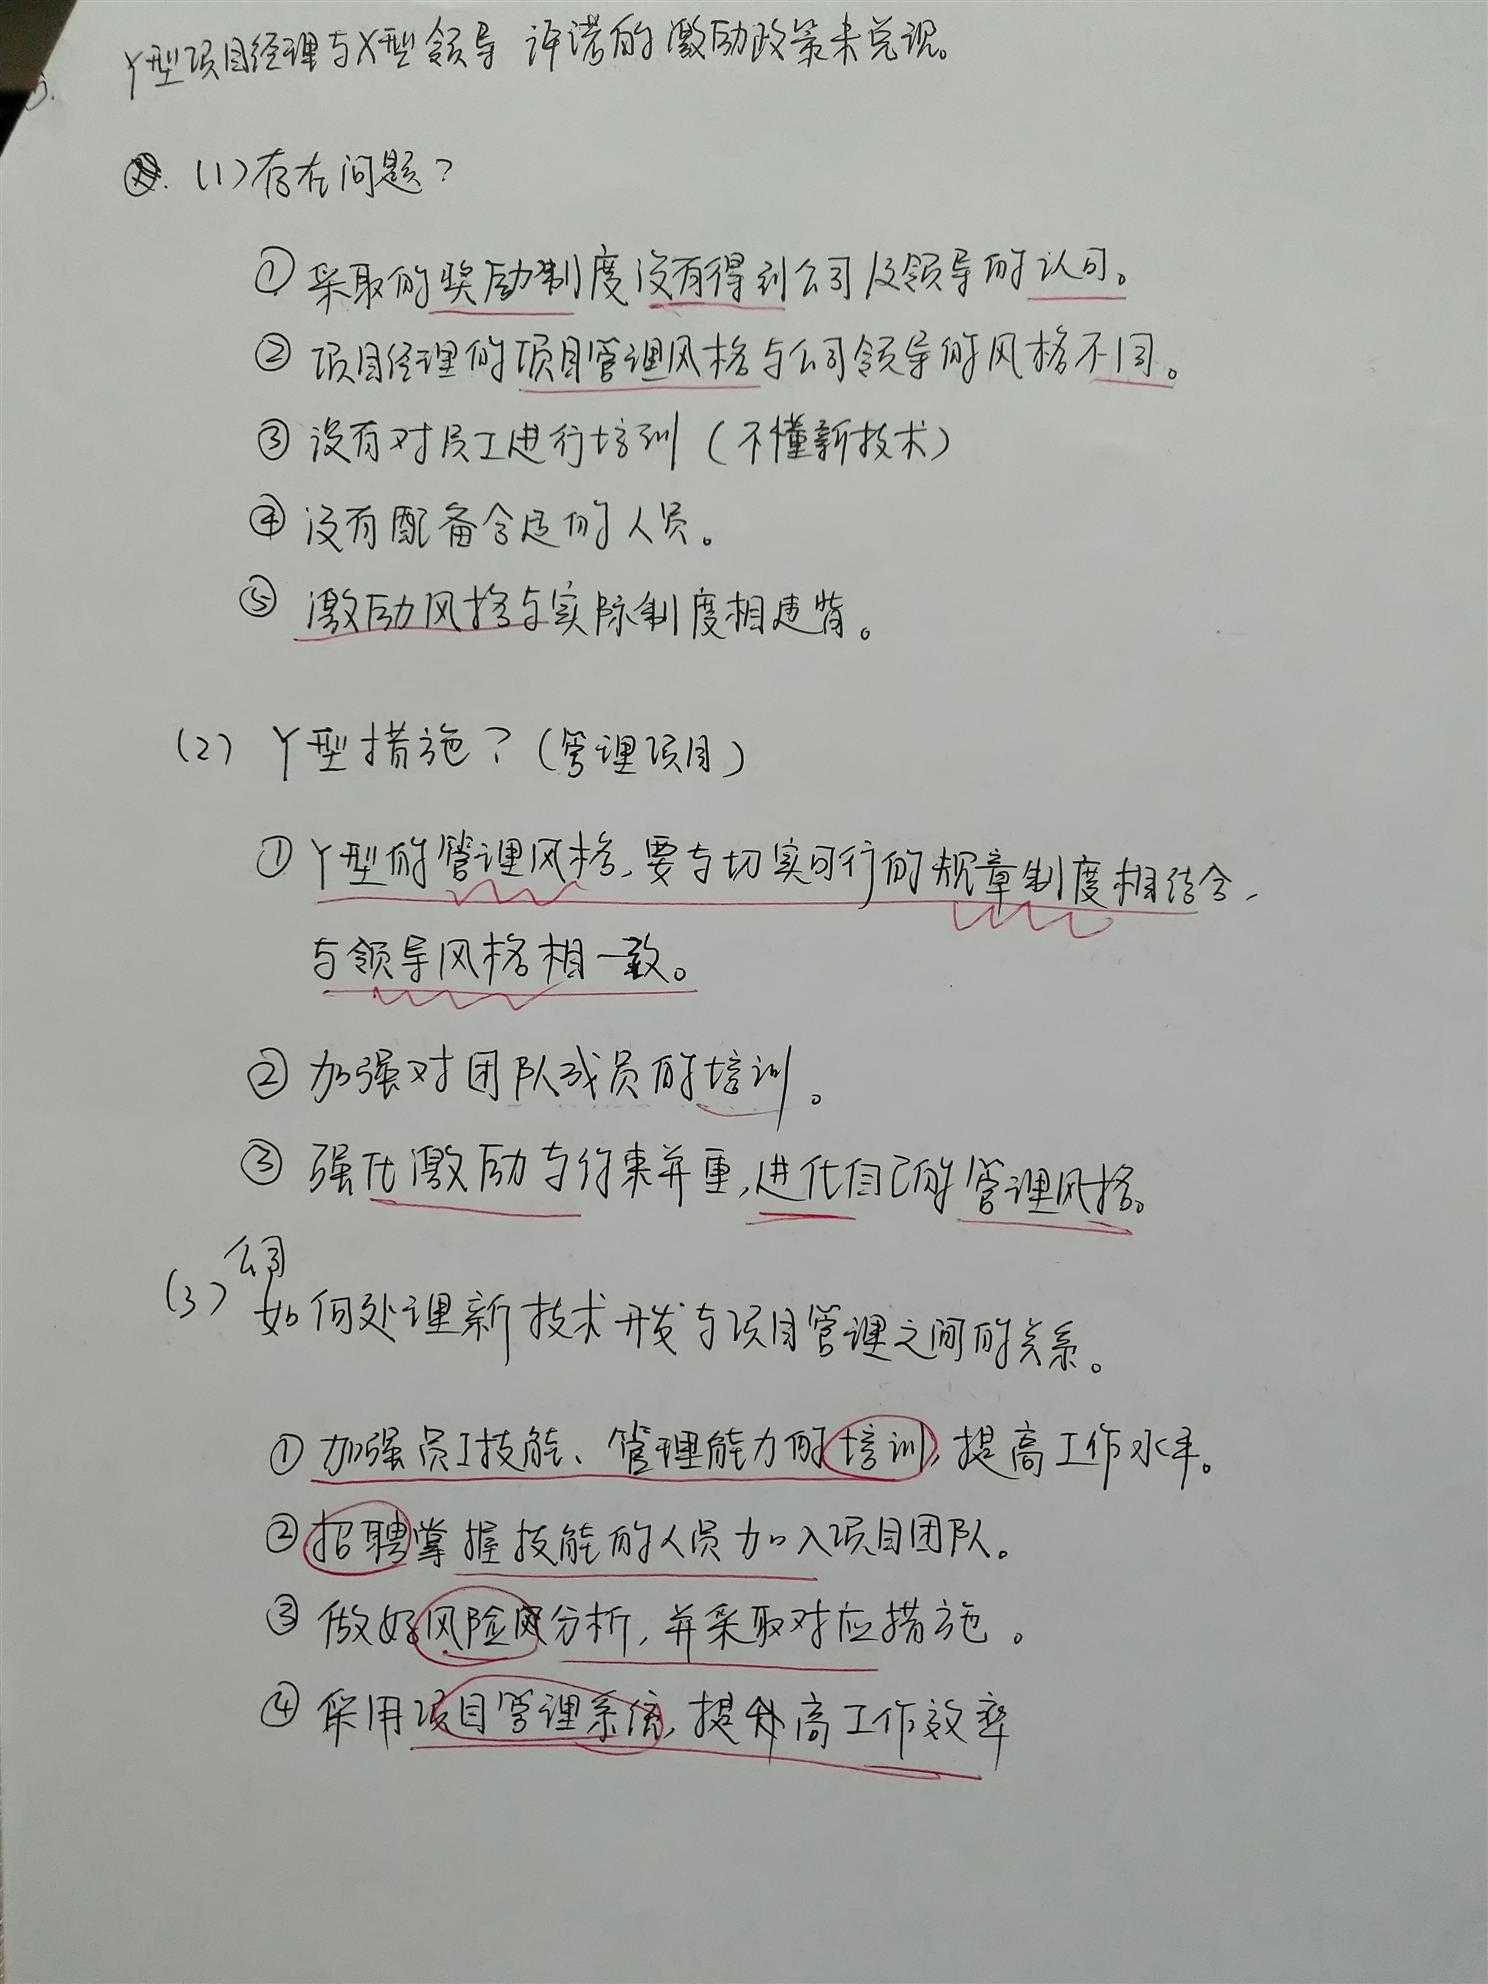 Y型项目经理与X型领导 许诺的激励政策未兑现。
(1)存在问题?
① 采取的奖励制度没有得到公司及领导的认可。
② 项目经理的项目管理风格与公司领导的风格不同。
③ 没有对员工进行培训(不懂新技术)
④ 没有配备合适的人员。
⑤ 激励风格与实际制度相违背。
(2) Y型措施?(管理项目)
① Y型的管理风格,要与切实可行的规章制度相结合,
与领导风格相一致。
② 加强对团队成员的培训。
③ 强化激励与约束并重,进化自己的管理风格。
公司
(3) 如何处理新技术开发与项目管理之间的关系。
① 加强员工技能、管理能力的培训,提高工作水平。
② 招聘掌握技能的人员加入项目团队。
③ 做好风险分析,并采取对应措施。
④ 采用项目管理系统,提高工作效率